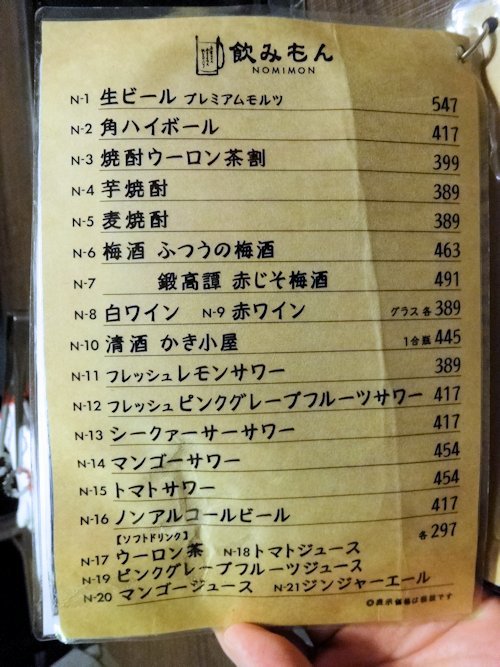 飲みもん
NOMIMON
N-1 生ビール プレミアムモルツ 547
N-2 角ハイボール 417
N-3 焼酎ウーロン茶割 399
N-4 芋焼酎 389
N-5 麦焼酎 389
N-6 梅酒 ふつうの梅酒 463
N-7 鍛高譚 赤じそ梅酒 491
N-8 白ワイン N-9 赤ワイン グラス 各 389
N-10 清酒 かき小屋 1合瓶 445
N-11 フレッシュレモンサワー 389
N-12 フレッシュピンクグレープフルーツサワー 417
N-13 シークァーサーサワー 417
N-14 マンゴーサワー 454
N-15 トマトサワー 454
N-16 ノンアルコールビール 417
【ソフトドリンク】 各 297
N-17 ウーロン茶 N-18 トマトジュース
N-19 ピンクグレープフルーツジュース
N-20 マンゴージュース N-21 ジンジャーエール
◎表示価格は税抜です